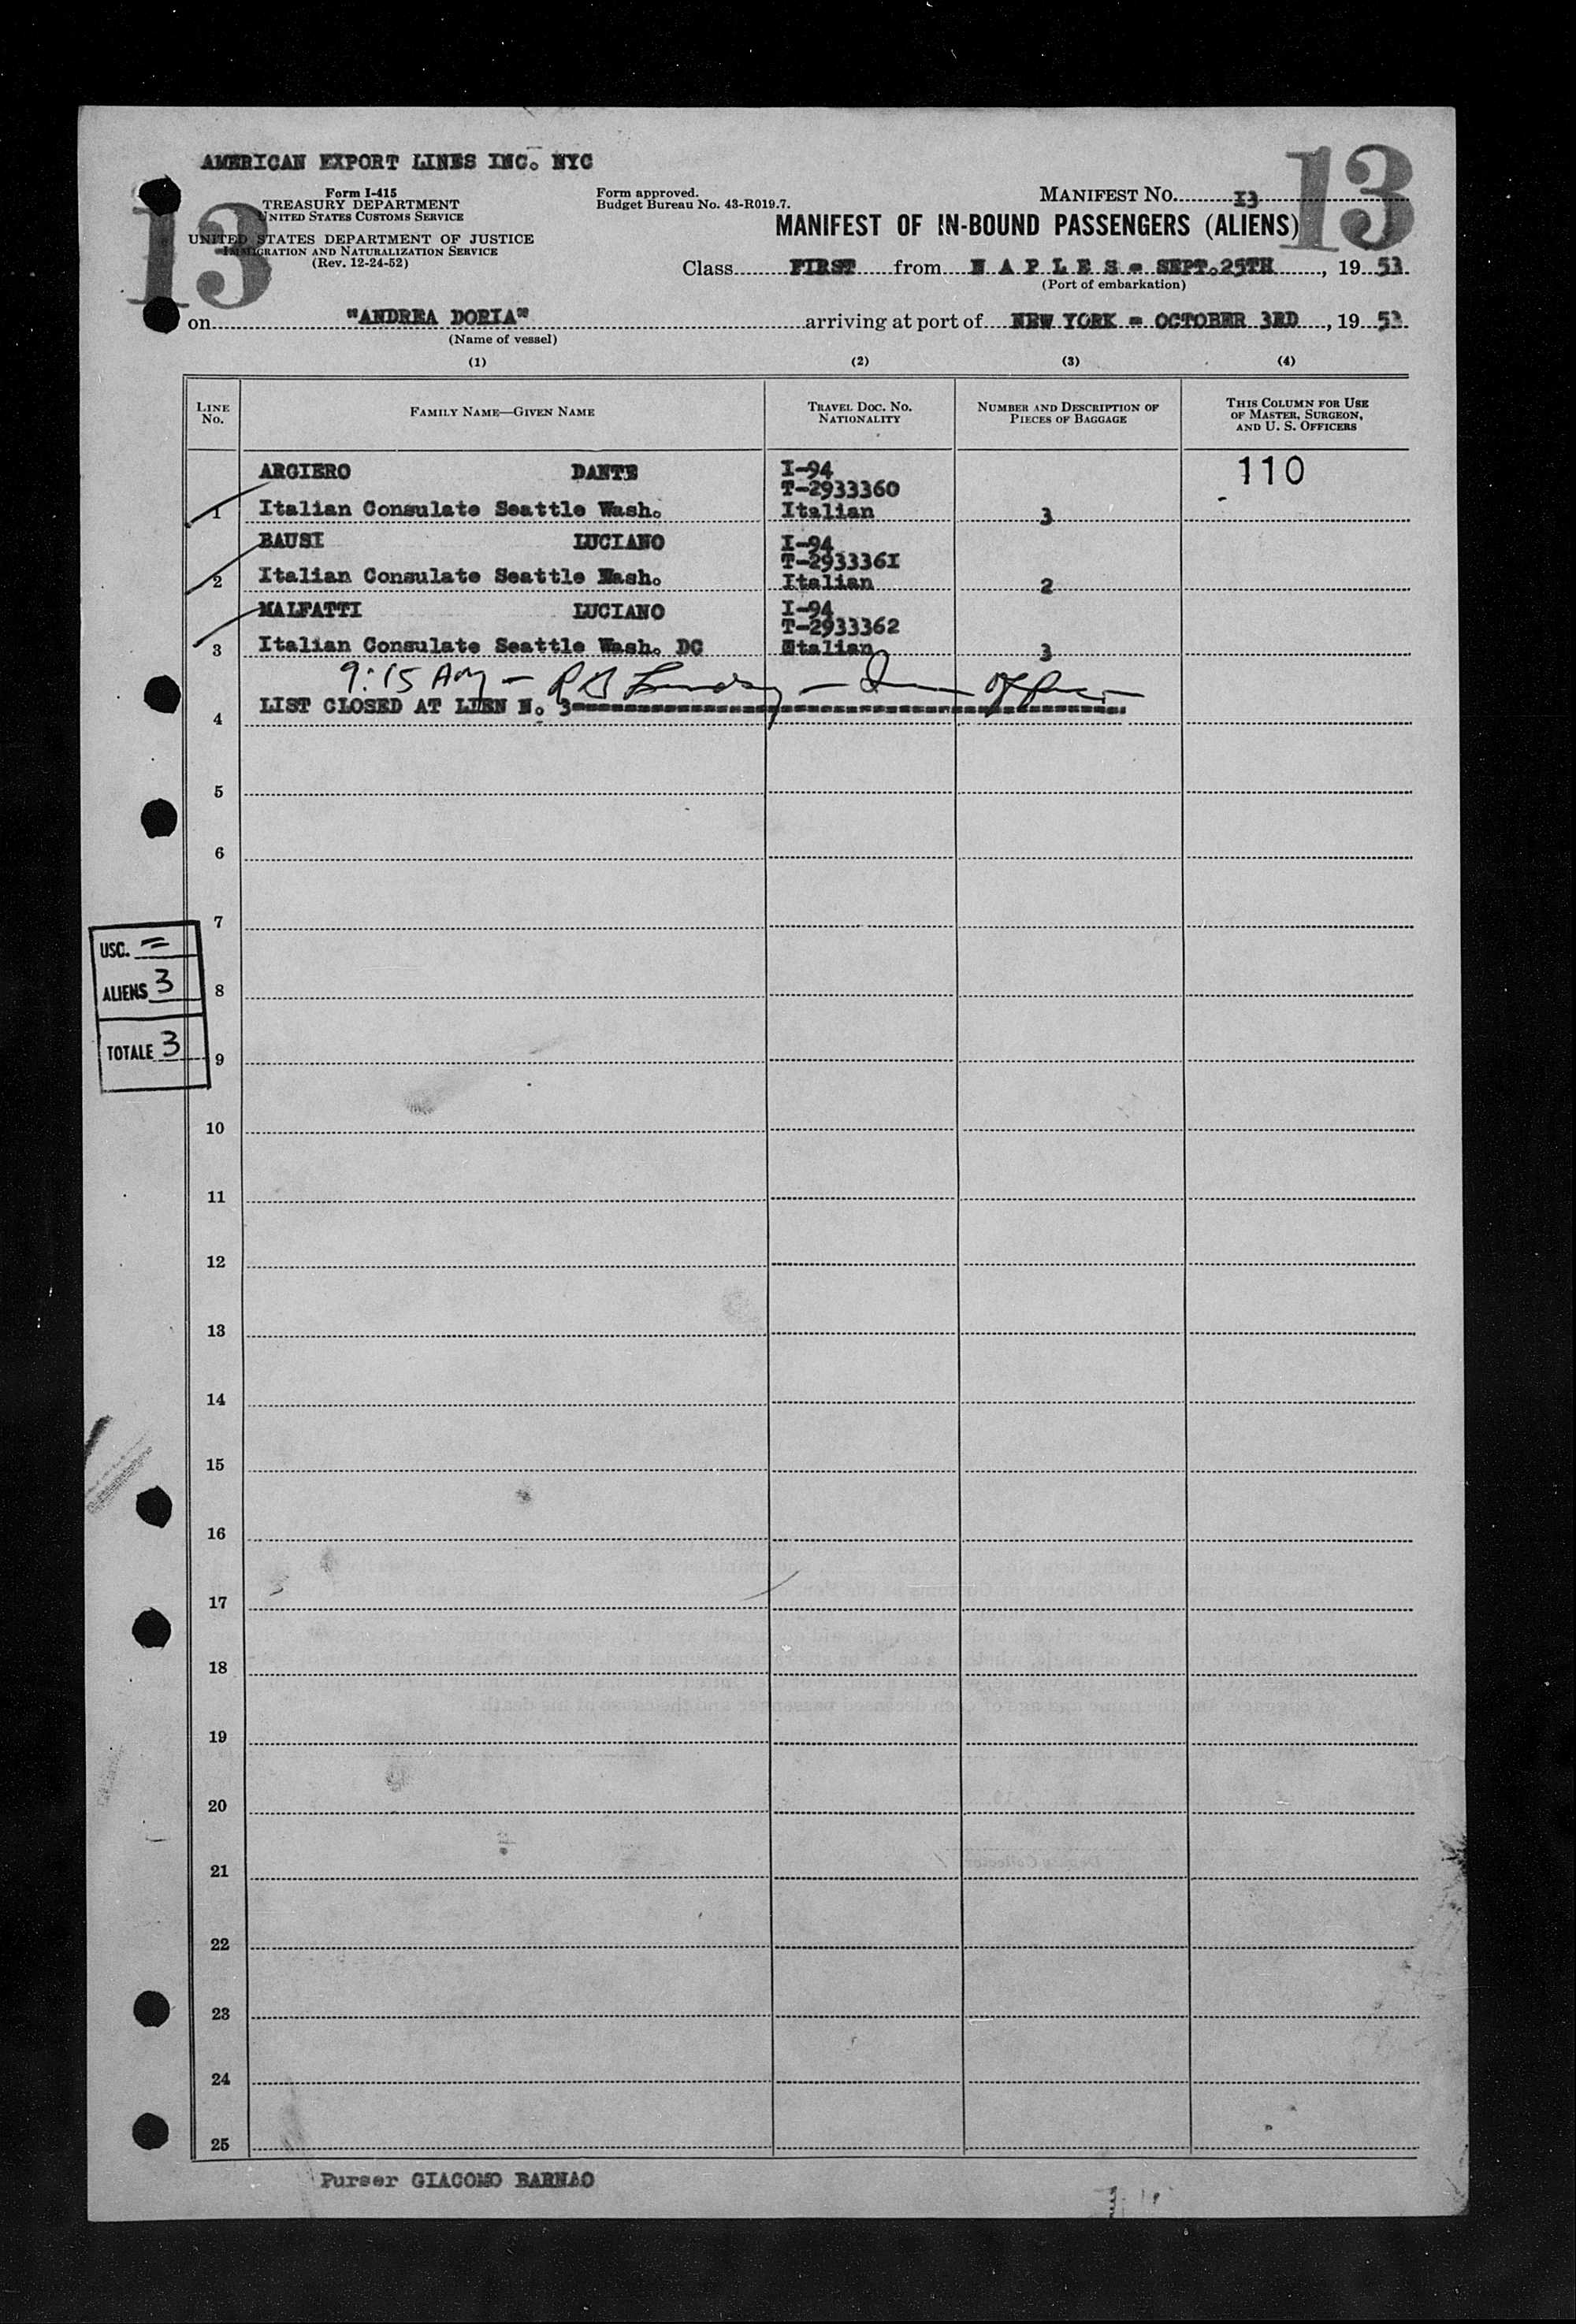 AMERICAN EXPORT LINES INC. NYC
13
13
Form I-415
TREASURY DEPARTMENT
UNITED STATES CUSTOMS SERVICE
UNITED STATES DEPARTMENT OF JUSTICE
IMMIGRATION AND NATURALIZATION SERVICE
(Rev. 12-24-52)
Form approved.
Budget Bureau No. 43-R019.7.
MANIFEST No. I3
MANIFEST OF IN-BOUND PASSENGERS (ALIENS)
Class FIRST from N A P L E S = SEPT.25TH, 19 53
(Port of embarkation)
on "ANDREA DORIA" arriving at port of NEW YORK = OCTOBER 3RD, 19 53
(Name of vessel)
(1) (2) (3) (4)
LINE No. FAMILY NAME—GIVEN NAME TRAVEL DOC. No. NATIONALITY NUMBER AND DESCRIPTION OF PIECES OF BAGGAGE THIS COLUMN FOR USE OF MASTER, SURGEON, AND U. S. OFFICERS
ARGIERO DANTE I-94 110
T-2933360
1 Italian Consulate Seattle Wash. Italian 3
BAUSI LUCIANO I-94
T-293336I
2 Italian Consulate Seattle Wash. Italian 2
MALFATTI LUCIANO I-94
T-2933362
3 Italian Consulate Seattle Wash. DC Italian 3
9:15 AM —
4 LIST CLOSED AT LIEN N. 3
5
6
7
USC. =
ALIENS 3
8
TOTALE 3
9
10
11
12
13
14
15
16
17
18
19
20
21
22
23
24
25
Purser GIACOMO BARNAO